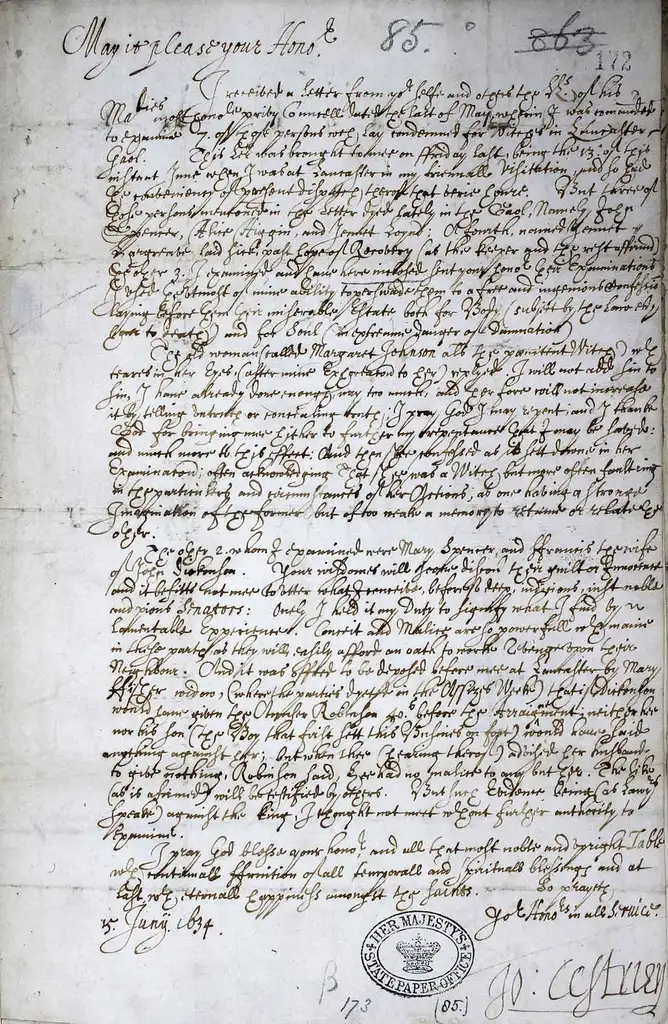 85. 863
172
May it please your Honor.
I received a Letter from yor selfe and others the LLs. of his
Maties most honole privy Councell dated the last of May, wherin I was comanded
to examine 7. of those persons wch lay condemned for Witches in Lancaster
Gaol. This Lre was brought to mee on ffriday last, being the 13. of this
instant June when I was at Lancaster in my triennall Visitation, and so had
the conveniency of persons dispatch there that verie houre. But three of
those persons mentioned in the Letter dyed lately in the Gaol, Namely John
Spencer, Alice Higgin, and Jennet Loynd: A fourth, named Jennet
Hargreave laid sick, past hope of Recovery (as the keeper and the rest affirmed)
The other 3. I examined and have here inclosed sent your honor their Examinations
I used the utmost of mine ability to perswade them to a free and ingenious Confession
laying before them their miserable Estate both for Body (subject by the Law to
to death) and for Soul (in extreame danger of Damnation)
The old woman (called Margaret Johnson als the penitent Witch) wth
teares in her Eyes, (after mine Exhortation to her) replyed. I will not add sin to
sin, I have already done enough, nay too much, and therfore will not increase
it by telling untruth or concealing truth; I pray God I may repent; and I thank
God for bringing mee hither to further my repentance that I may be saved:
and much more to this effect: And then shee confessed as is sett downe in her
Examination; often acknowledging that shee was a Witch but more often faulting
in the particulers and circumstances of her Actions, as one having a stronge
Imagination of the former, but of too weake a memory to retaine or relate the
other.
The other 2. whom I examined were Mary Spencer, and ffrauncis the wife
of John Dickonson. Your wisdomes will geather upon their guilt or Innocence
and it befitts not mee to utter what I conceive, before so deep, judicious, just noble
and pious Senators: Onely I held it my duty to signify what I find by
Lamentable Experience. Conceit and Malice are so powerfull wth manie
in those parts, as they will easily afford an oath to worke Revenge upon their
Neighbour. And it was offred to be deposed before mee at Lancaster by Mary
ffisher widow, (where the parties in the Assizes Week) that Dickonson
would have given the Number Robinson 40s. before the Arraignment; neither hee
nor his son (the Boy that first sett this Busines on foot) would have said
anything against her; but when shee (hearing therof) advised her husband
to give nothing: Robinson said, hee had no malice to any but her. The like
(as is affirmed) will be testified by others. But such Evidence being (as Lawyers
speake) against the King, I thought not meet wthout further authority to
examine.
I pray God blesse your honor, and all that most noble and upright Table
wth continuall affinition of all temporall and spirituall blessings and at
last wth eternall happiness amongst the Saints. So prayeth
15. Juny 1634. Yor Honors in all Service.
Jo: Cestrien
HER MAJESTY'S STATE PAPER OFFICE
173 (85.)